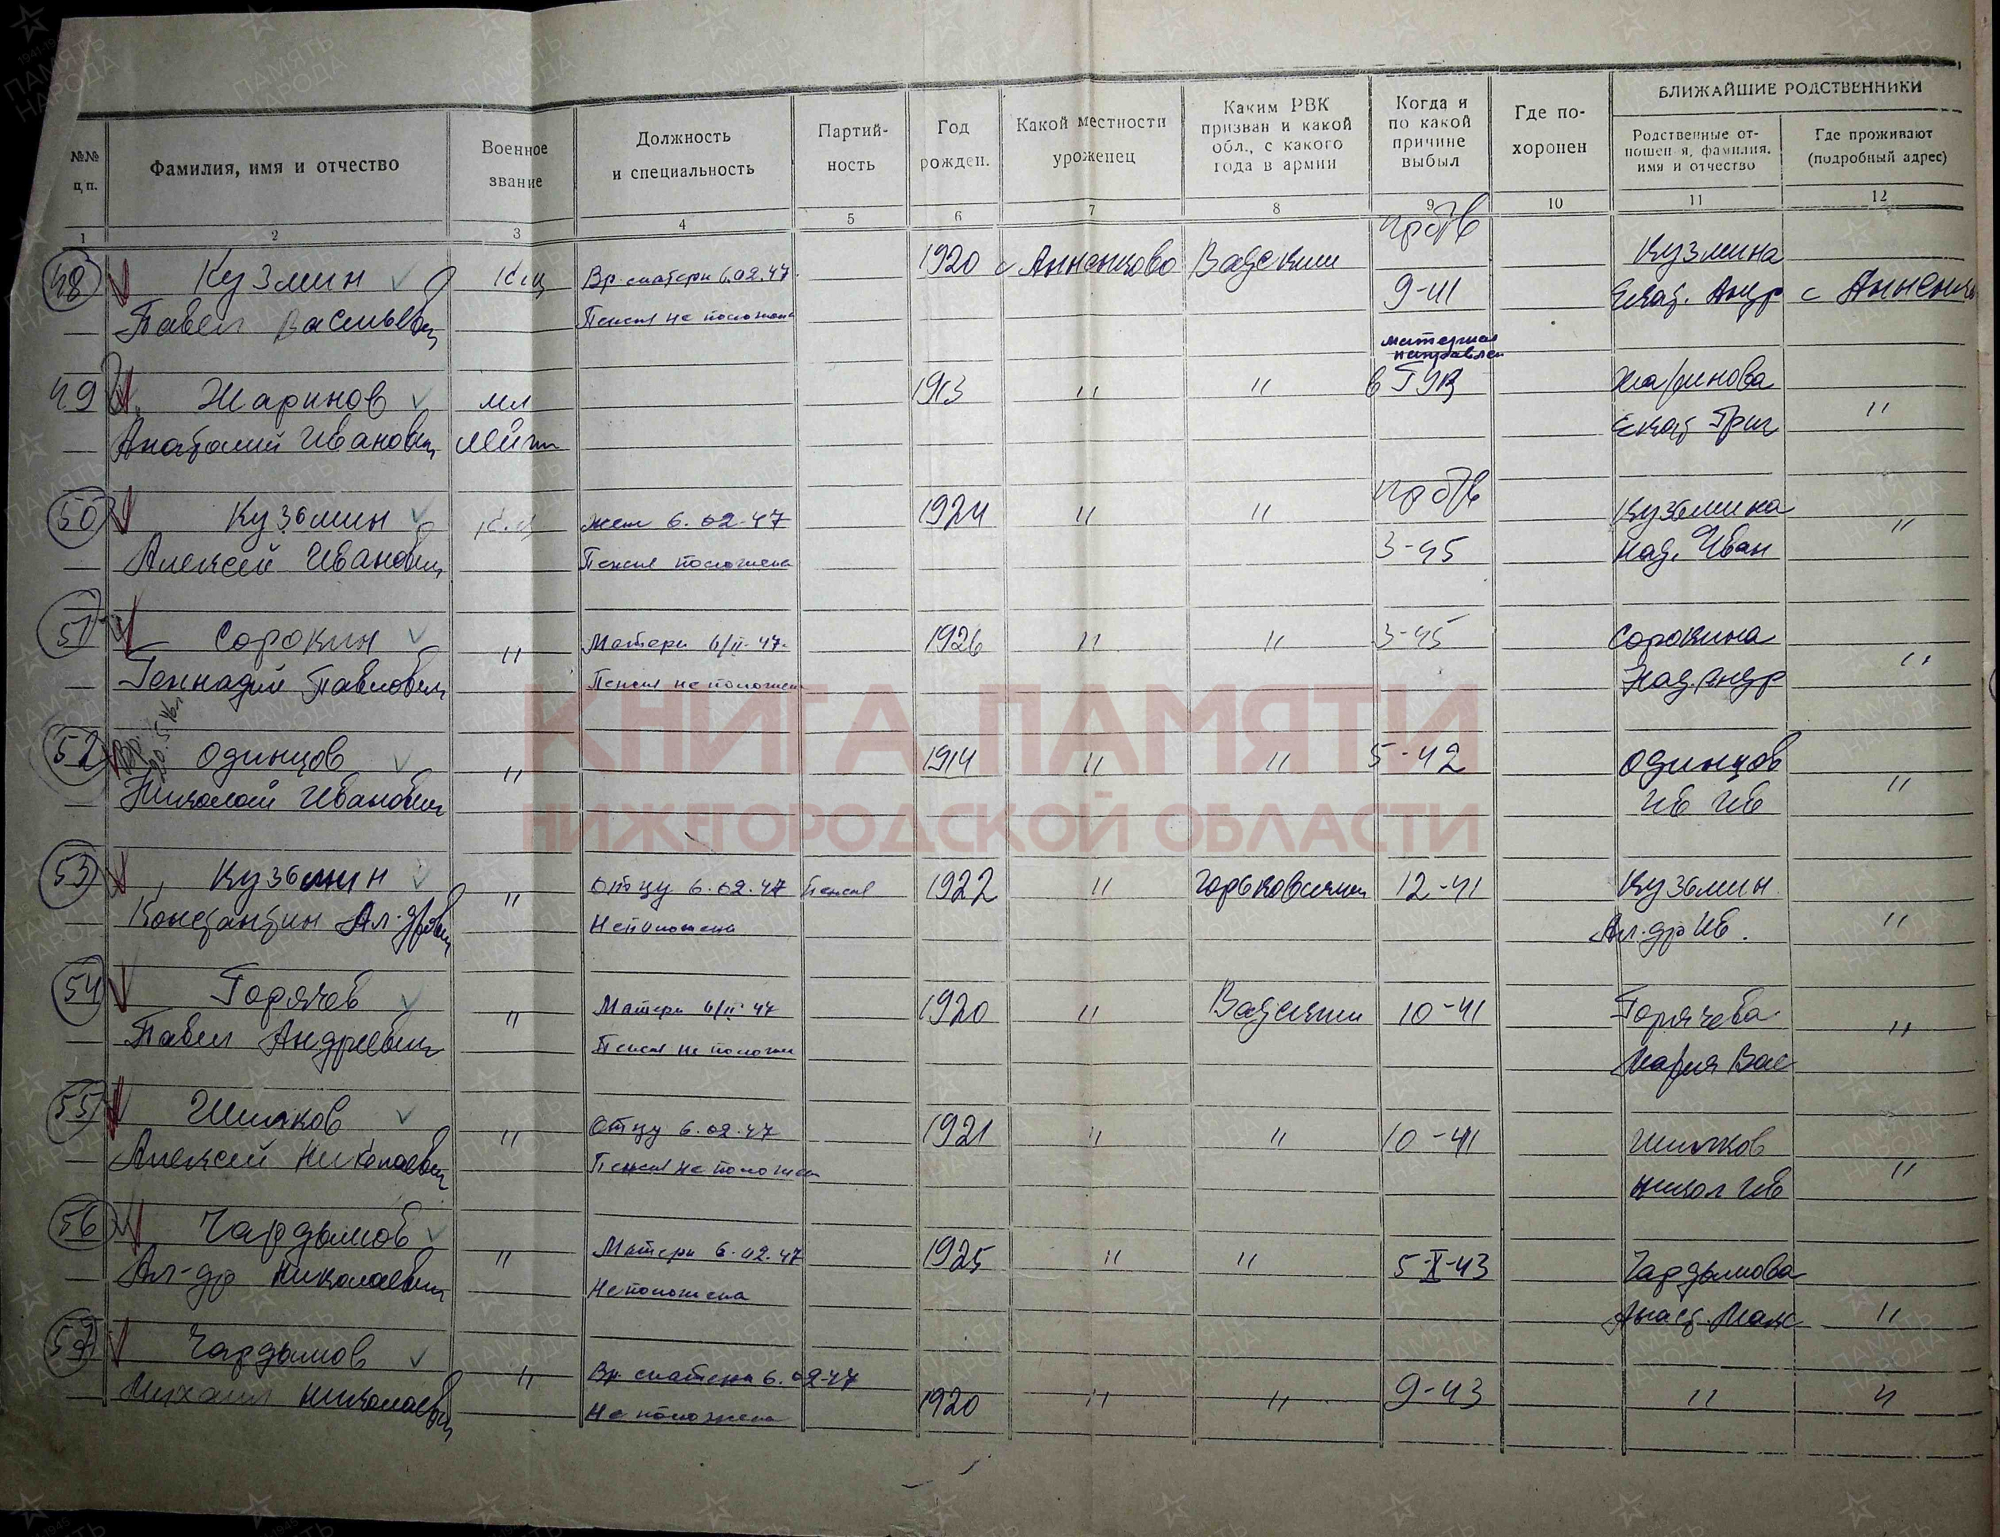 БЛИЖАЙШИЕ РОДСТВЕННИКИ
№№ п.п.
Фамилия, имя и отчество
Военное звание
Должность и специальность
Партийность
Год рожден.
Какой местности уроженец
Каким РВК призван и какой обл., с какого года в армии
Когда и по какой причине выбыл
Где похоронен
Родственные отношения, фамилия, имя и отчество
Где проживают (подробный адрес)
1 2 3 4 5 6 7 8 9 10 11 12
проп/в
48 Кузмин Кр-ц Вр. с матери 6.02.47. 1920 с Анненково Вадским 9-41 Кузмина
Павел Васильевич Пенсия не положена Екат. Андр с Анненк
материал направлен
49 Жаринов мл 1913 " " в ГУК Жаринова
Анатолий Иванович лейт Екат Григ "
проп/в
50 Кузьмин Кр.ц жене 6.02.47 1924 " " 3-45 Кузьмина
Алексей Иванович Пенсия положена Над. Иван "
51 Сорокин " Матери 6/II-47. 1926 " " 3-45 Сорокина
Геннадий Павлович Пенсия не положен Над. Андр "
Вр. 20.5.46г
52 Одинцов " 1914 " " 5-42 Одинцов
Николай Иванович Ив Ив "
53 Кузьмин " Отцу 6.02.47 Пенсия 1922 " Горьковским 12-41 Кузьмин
Константин Ал-дрович Не положена Ал-др Ив. "
54 Горячев " Матери 6/II-47 1920 " Вадским 10-41 Горячева
Павел Андреевич Пенсия не положен Мария Вас "
55 Шишков " Отцу 6.02.47 1921 " " 10-41 Шишков
Алексей Николаевич Пенсия не положен Никол Ив "
56 Чардымов " Матери 6.02.47 1925 " " 5-X-43 Чардымова
Ал-др Николаевич Не положена Анаст. Мак "
57 Чардымов " Вр с матери 6.02.47 1920 " " 9-43 " "
Михаил Николаевич Не положена
КНИГА ПАМЯТИ
НИЖЕГОРОДСКОЙ ОБЛАСТИ
ПАМЯТЬ НАРОДА